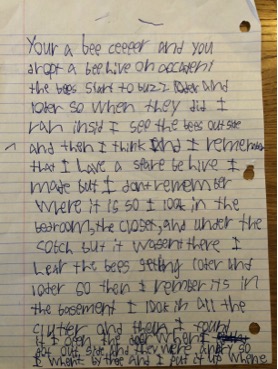 Your a bee ceeper and you
dropt a bee hive on accident
the bees start to buzz loder and
loder so when they did I
ran insid I see the bees out side
and then I think and I remember
that I have a spare be hive I
made but I dont remember
where it is so I look in the
bedroom, the closet, and under the
cotch but it wasent there I
hear the bees getting loder and
loder so then I remember its in
the basement I look in all the
clutter and then I found
it I open the door when I
got out side and they were
I whent by tree and I put it up where